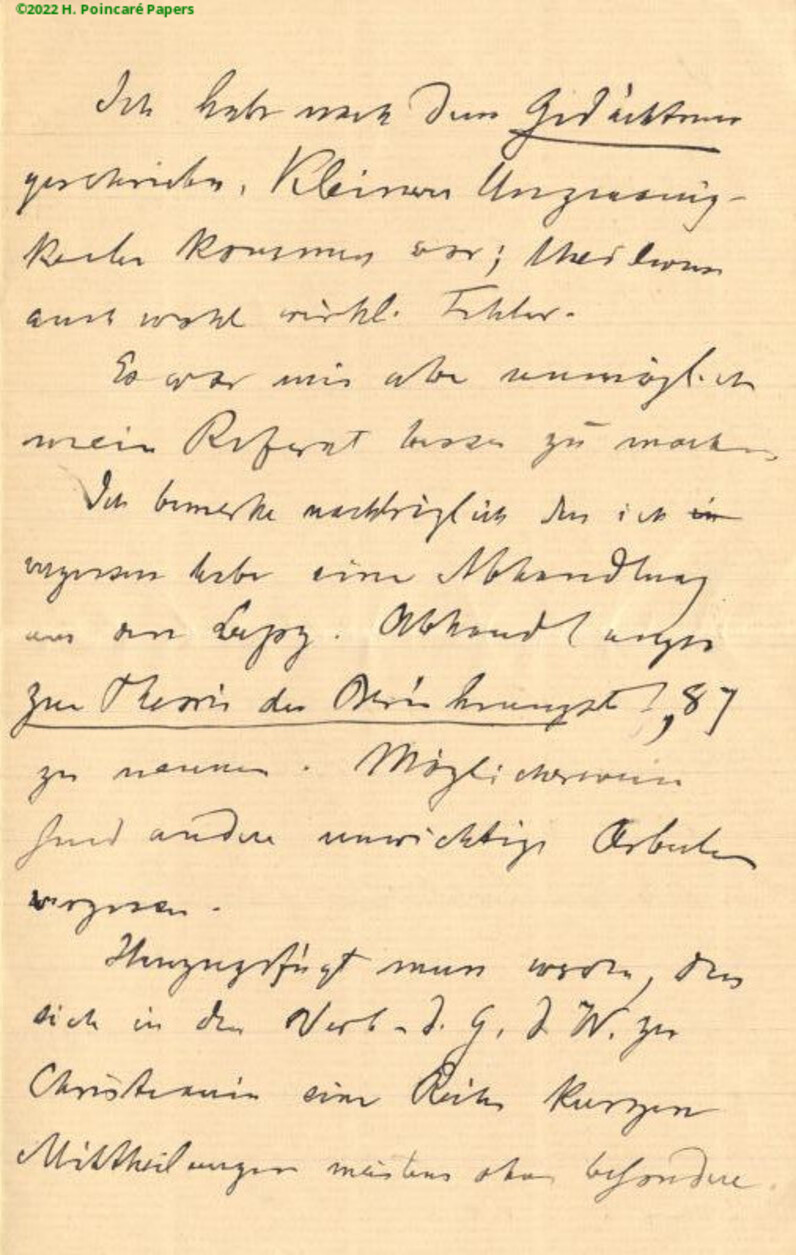 ©2022 H. Poincaré Papers
Ich habe nach dem Gedächtniss
geschrieben. Kleinere Ungenauig-
keiten kommen vor; theilweise
auch wohl wirkl. Fehler.
Es war mir aber unmöglich
mein Referat besser zu machen.
Ich bemerke nachträglich dass ich in
vergessen habe eine Abhandlung
aus den Leipz. Abhandlungen
zur Theorie der Berührungstr, 87
zu nennen. Möglicherweise
sind andere unwichtige Arbeiten
vergessen.
Hinzugefügt muss werden, dass
sich in den Verh. d. G. d. W. zu
Christiania eine Reihe kurzen
Mittheilungen meistens ohne besondere